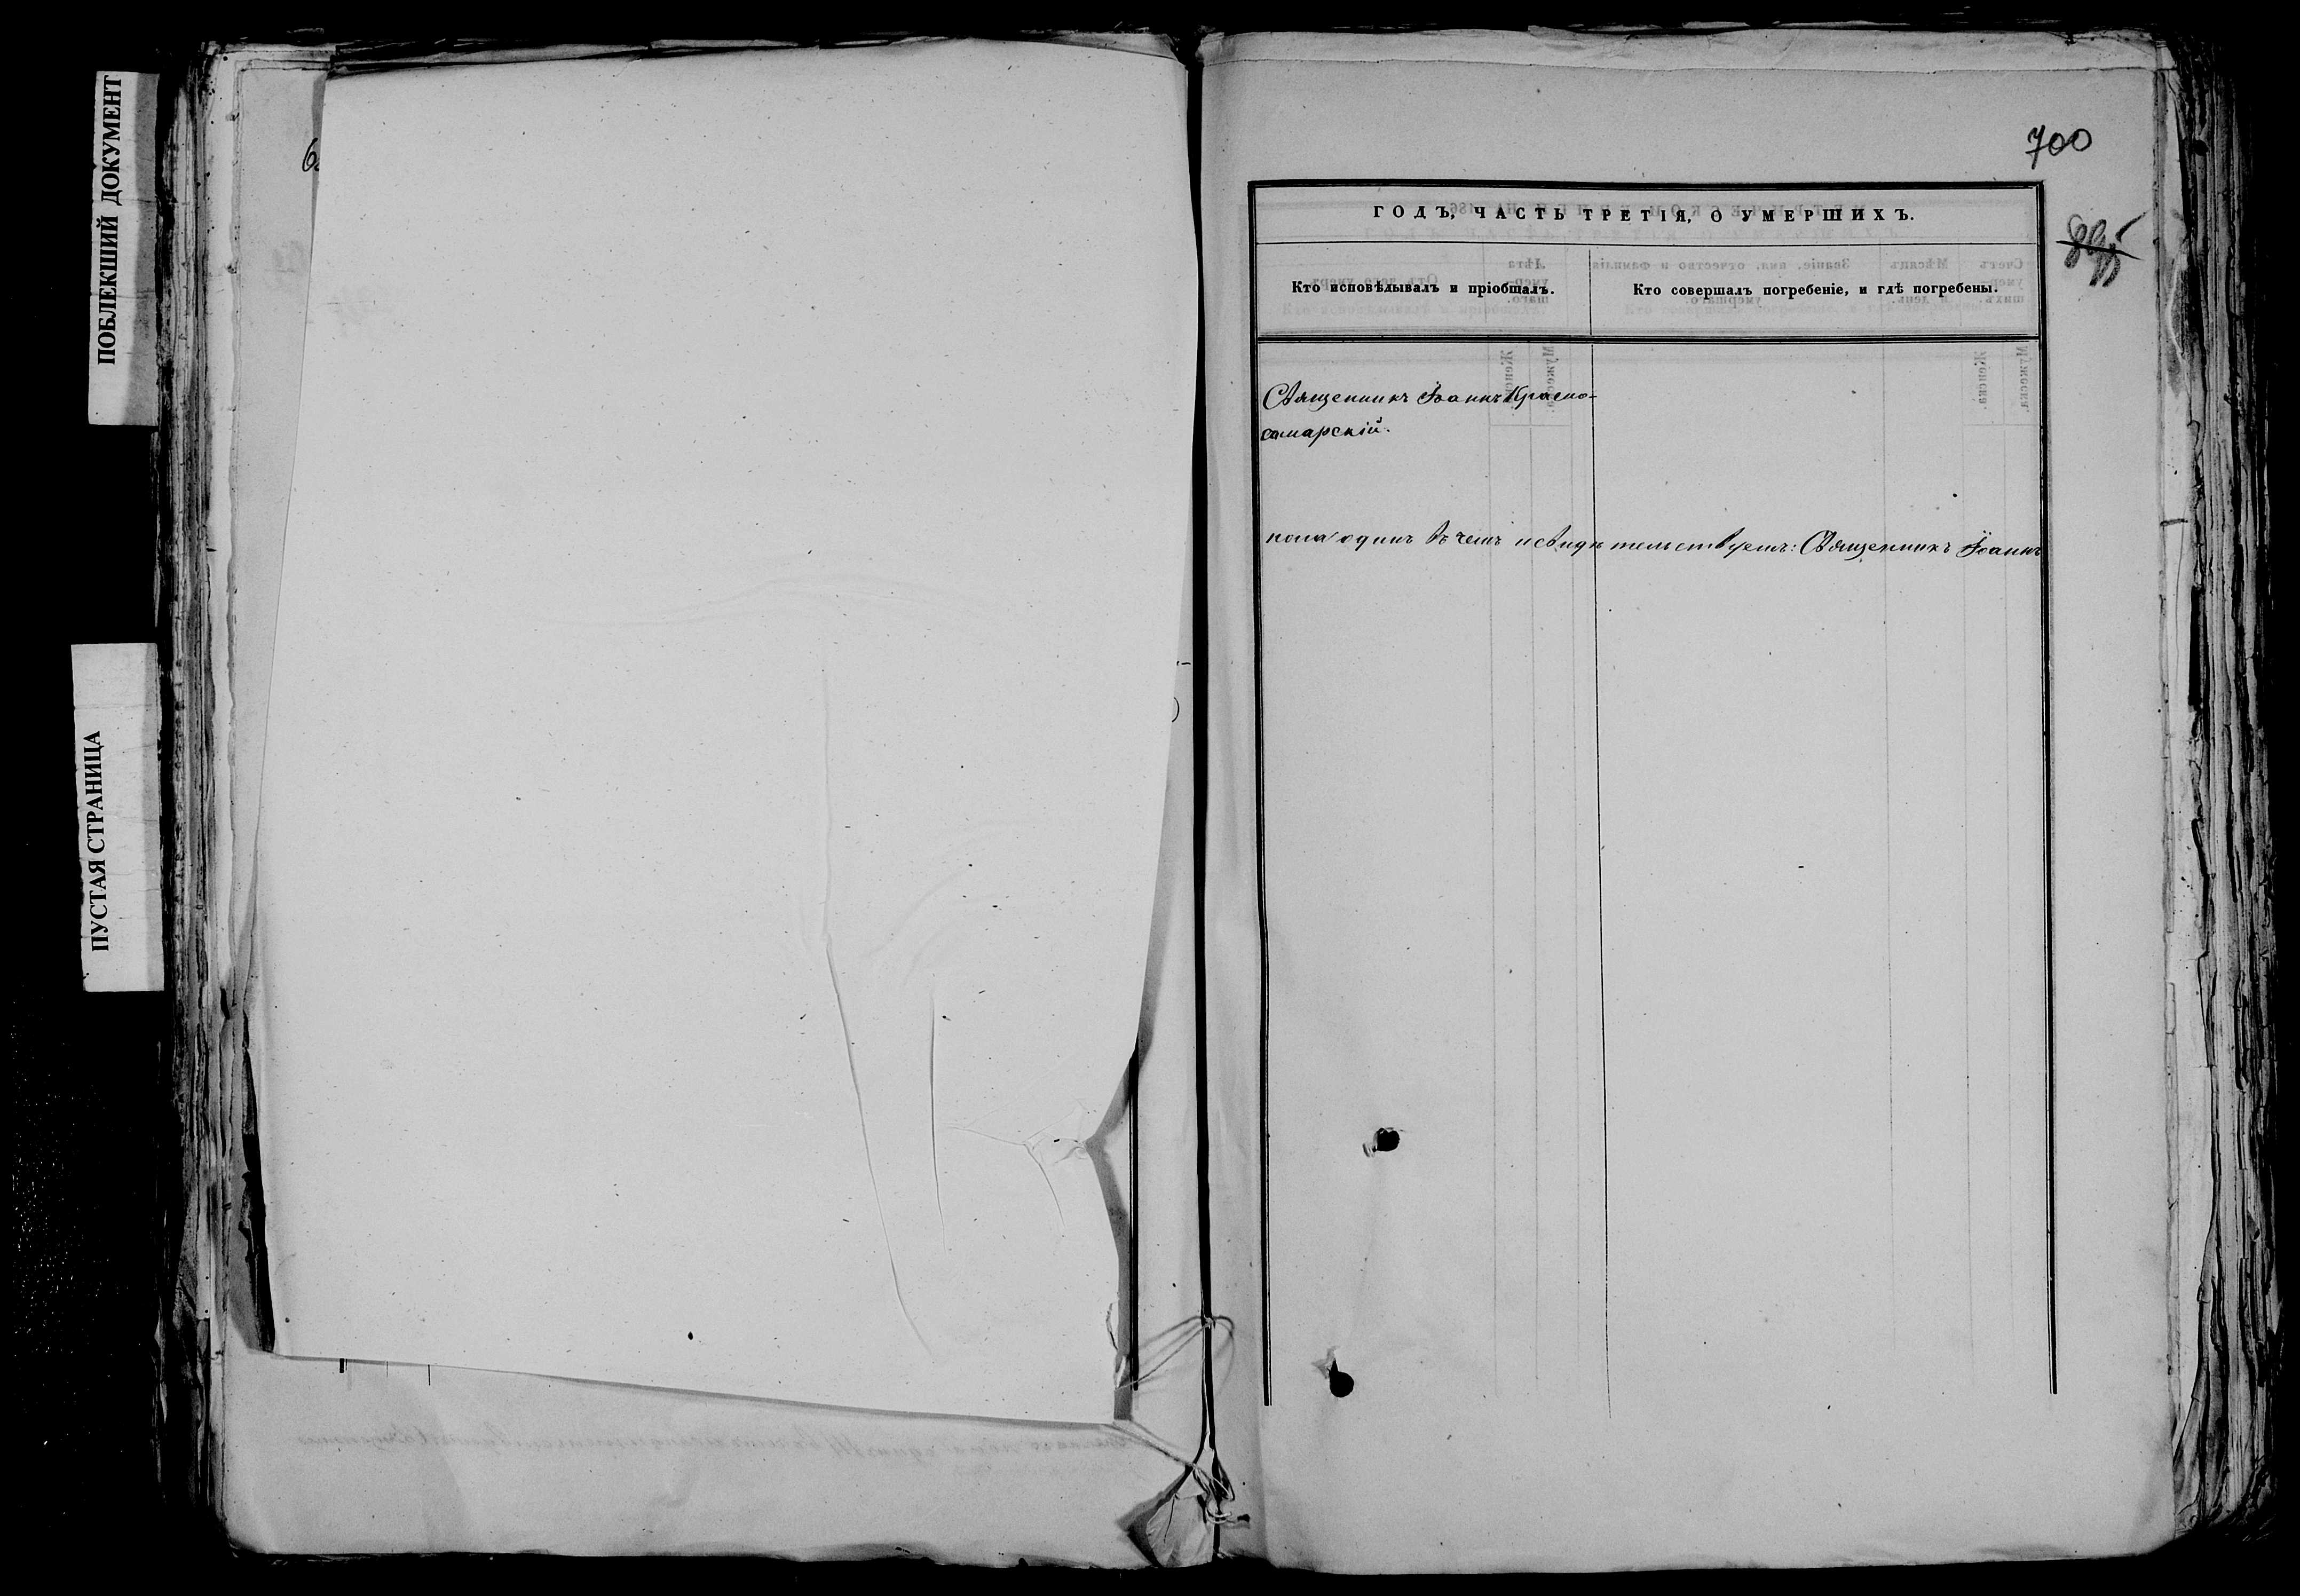 ПОБЛЕКШИЙ ДОКУМЕНТ
ПУСТАЯ СТРАНИЦА
700
895
ГОДЪ, ЧАСТЬ ТРЕТІЯ, О УМЕРШИХЪ.
Кто исповѣдывалъ и пріобщалъ.
Кто совершалъ погребеніе, и гдѣ погребены.
Священникъ Іоаннъ Красно-
самарскій.
пола одинъ въ чемъ и свидѣтельствуемъ: Священникъ Іоаннъ